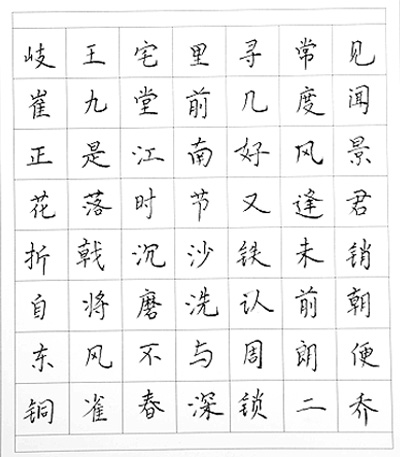 岐王宅里寻常见
崔九堂前几度闻
正是江南好风景
花落时节又逢君
折戟沉沙铁未销
自将磨洗认前朝
东风不与周郎便
铜雀春深锁二乔